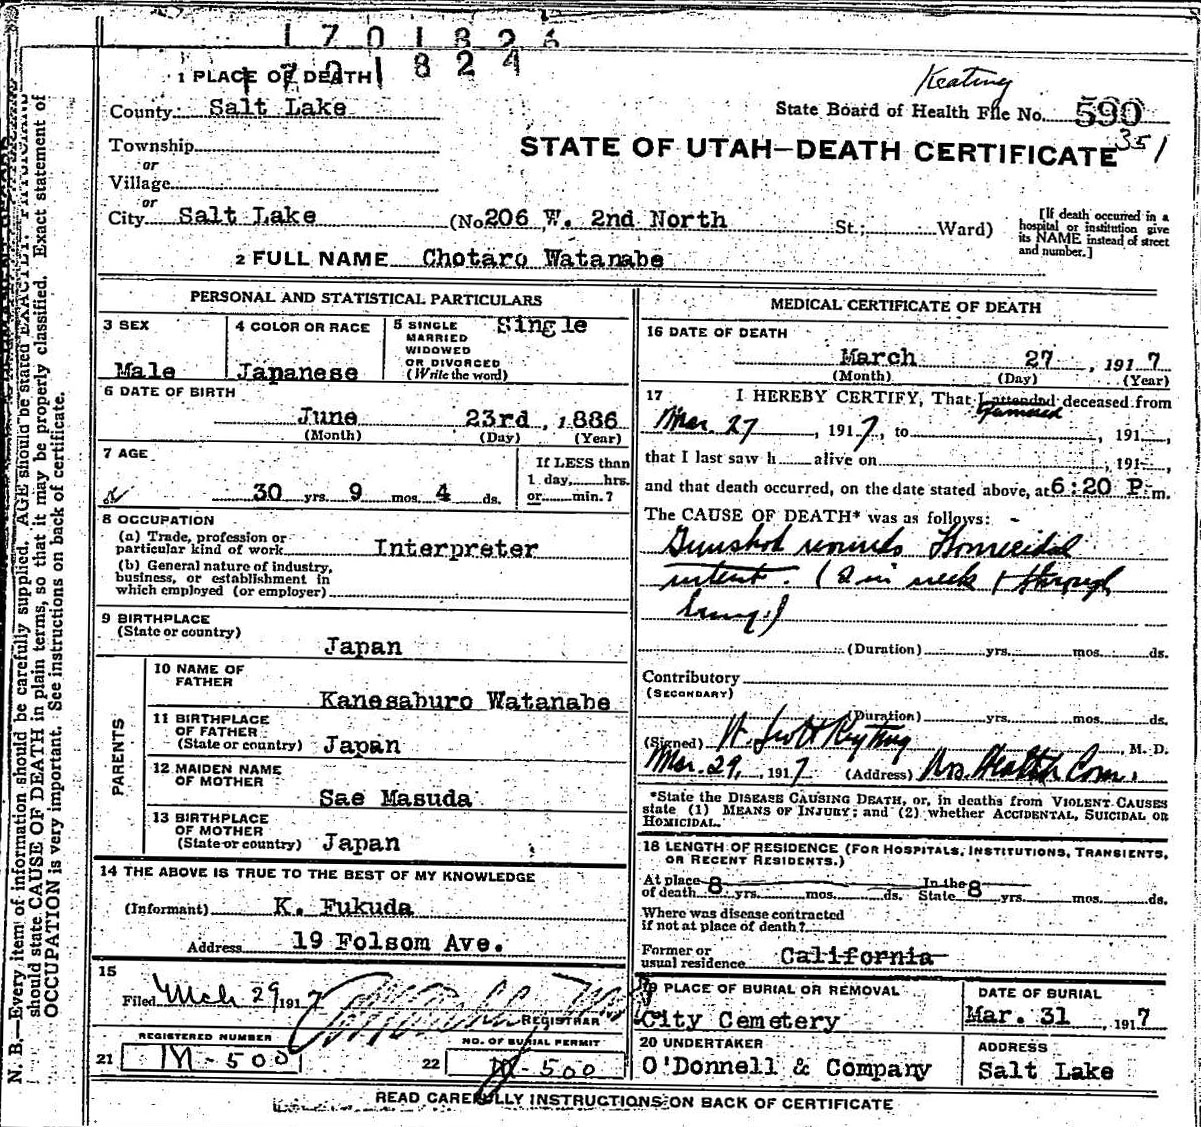 1701824
1701824
Keating
1 PLACE OF DEATH
State Board of Health File No. 590
351
County Salt Lake
STATE OF UTAH—DEATH CERTIFICATE
Township
or
Village
or
City Salt Lake (No. 206 W. 2nd North St.; Ward)
[If death occurred in a hospital or institution give its NAME instead of street and number.]
2 FULL NAME Chotaro Watanabe
PERSONAL AND STATISTICAL PARTICULARS
3 SEX
Male
4 COLOR OR RACE
Japanese
5 SINGLE
MARRIED
WIDOWED
OR DIVORCED
(Write the word)
Single
6 DATE OF BIRTH
June 23rd, 1886
(Month) (Day) (Year)
7 AGE
30 yrs. 9 mos. 4 ds.
If LESS than
1 day, hrs.
or min.?
8 OCCUPATION
(a) Trade, profession or
particular kind of work Interpreter
(b) General nature of industry,
business, or establishment in
which employed (or employer)
9 BIRTHPLACE
(State or country)
Japan
PARENTS
10 NAME OF
FATHER
Kanesaburo Watanabe
11 BIRTHPLACE
OF FATHER
(State or country) Japan
12 MAIDEN NAME
OF MOTHER
Sae Masuda
13 BIRTHPLACE
OF MOTHER
(State or country) Japan
14 THE ABOVE IS TRUE TO THE BEST OF MY KNOWLEDGE
(Informant) K. Fukuda
Address 19 Folsom Ave.
15
Filed Mch 29 1917
REGISTRAR
REGISTERED NUMBER
21 M-500
NO. OF BURIAL PERMIT
22 M-500
MEDICAL CERTIFICATE OF DEATH
16 DATE OF DEATH
March 27, 1917
(Month) (Day) (Year)
17 I HEREBY CERTIFY, That I attended deceased from
Mar. 27, 1917, to , 191 ,
that I last saw h alive on , 191 ,
and that death occurred, on the date stated above, at 6:20 P.m.
The CAUSE OF DEATH* was as follows:
Gunshot wounds Homicidal
intent. (2 in neck & through
lung)
(Duration) yrs. mos. ds.
Contributory
(SECONDARY)
(Duration) yrs. mos. ds.
(Signed) W. Scott Keyting, M. D.
Mar. 29, 1917 (Address) Health Com.
*State the DISEASE CAUSING DEATH, or, in deaths from VIOLENT CAUSES
state (1) MEANS OF INJURY; and (2) whether ACCIDENTAL, SUICIDAL OR
HOMICIDAL.
18 LENGTH OF RESIDENCE (FOR HOSPITALS, INSTITUTIONS, TRANSIENTS,
OR RECENT RESIDENTS.)
At place
of death 8 yrs. mos. ds. In the State 8 yrs. mos. ds.
Where was disease contracted
if not at place of death?
Former or
usual residence California
19 PLACE OF BURIAL OR REMOVAL
City Cemetery
DATE OF BURIAL
Mar. 31, 1917
20 UNDERTAKER
O'Donnell & Company
ADDRESS
Salt Lake
READ CAREFULLY INSTRUCTIONS ON BACK OF CERTIFICATE
N. B.—Every item of information should be carefully supplied. AGE should be stated EXACTLY. PHYSICIANS
should state CAUSE OF DEATH in plain terms, so that it may be properly classified. Exact statement of
OCCUPATION is very important. See instructions on back of certificate.